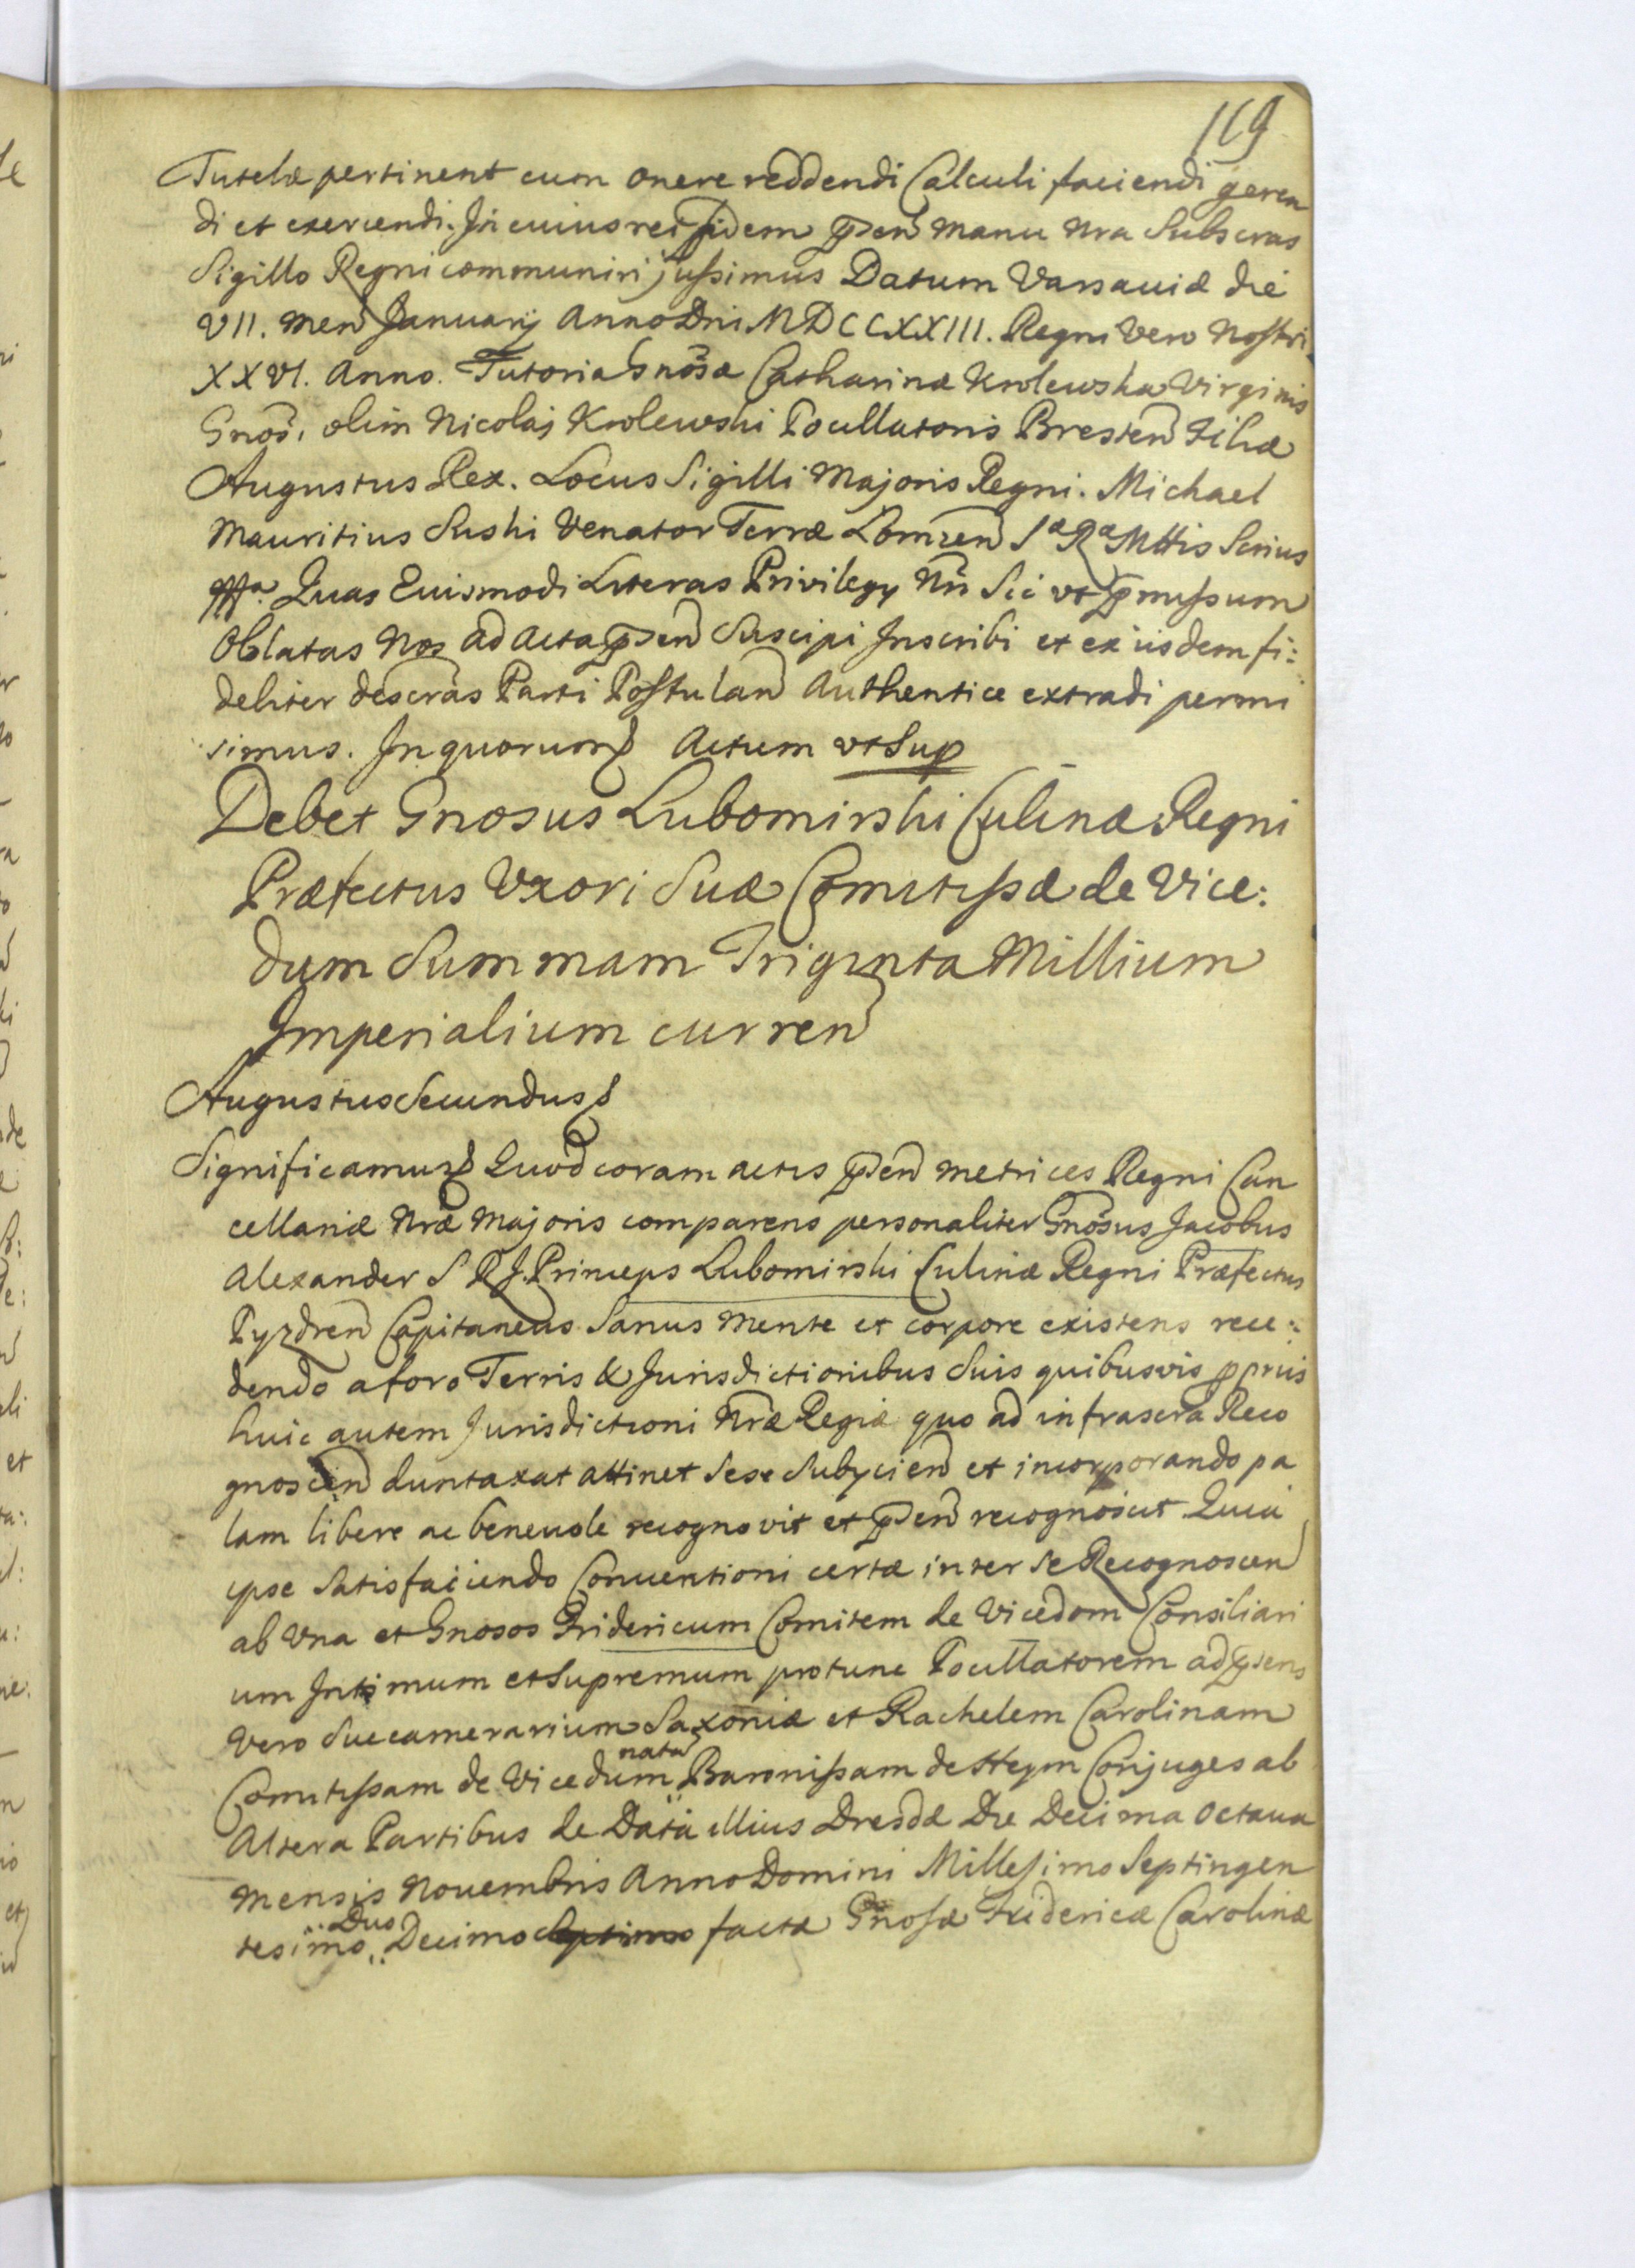 119
Tutelæ pertinent cum onere reddendi Calculi faciendi geren
di et exercendi. In cuius rei fidem p̄sen manu nra Subscras
Sigillo Regni communiri jussimus Datum Varsaviæ die
VII. men Januarij Anno Dni MDCCXXIII. Regni Vero Nostri
XXVI. Anno. Tutoria Gnōsæ Catharinæ Krolewska Virginis
Gnōs. olim Nicolaj Krolewski Pocillatoris Bresten Filiæ
Augustus Rex. Locus Sigilli Majoris Regni. Michael
Mauritius Suski Venator Terræ Lomzen Sæ Ræ Mttis Scrius
mppa. Quas Euismodi Literas Privilegy Nri Sic ut p̄missum
Oblatas Nos ad Acta p̄sen Suscipi Inscribi et ex iisdem fi:
deliter descras Parti Postulan Authentice extradi permi
simus. In quorum Actum ut Sup
Debet Gnosus Lubomirski Culinæ Regni
Præfectus Uxori Suæ Comitissæ de Vice:
dum Summam Triginta Millium
Imperialium curren
Augustus Secundus
Significamus Quod coram actis p̄sen metrices Regni Can
cellariæ Nræ Majoris comparens personaliter Gnōsus Jacobus
Alexander S R J. Princeps Lubomirski Culinæ Regni Præfectus
Pyzdren Capitaneus Sanus mente et corpore existens rece:
dendo a foro Terris & Jurisdictionibus Suis quibusvis ppriis
huic autem Jurisdictioni Nræ Regiæ quo ad infrascra Reco
gnoscen duntaxat attinet Sese Subycien et incorporando pa
lam libere ac benevole recognovit et p̄sen recognoscit Quia
ipse Satisfaciendo Conventioni certæ inter Se Recognoscen
ab Una et Gnosos Fridericum Comitem de Vicedom Consiliari
um Intimum et Supremum protunc Pocillatorem ad p̄sens
Vero Succamerarium Saxoniæ et Rachelem Carolinam
Comitissam de Vicedum nata Baronissam de Heym Conjuges ab
Altera Partibus de Data illius Dresdæ Die Decima Octava
Mensis Novembris Anno Domini Millesimo Septingen
tesimo Duo Decimo Septimo factæ Gnosæ Fridericæ Carolinæ